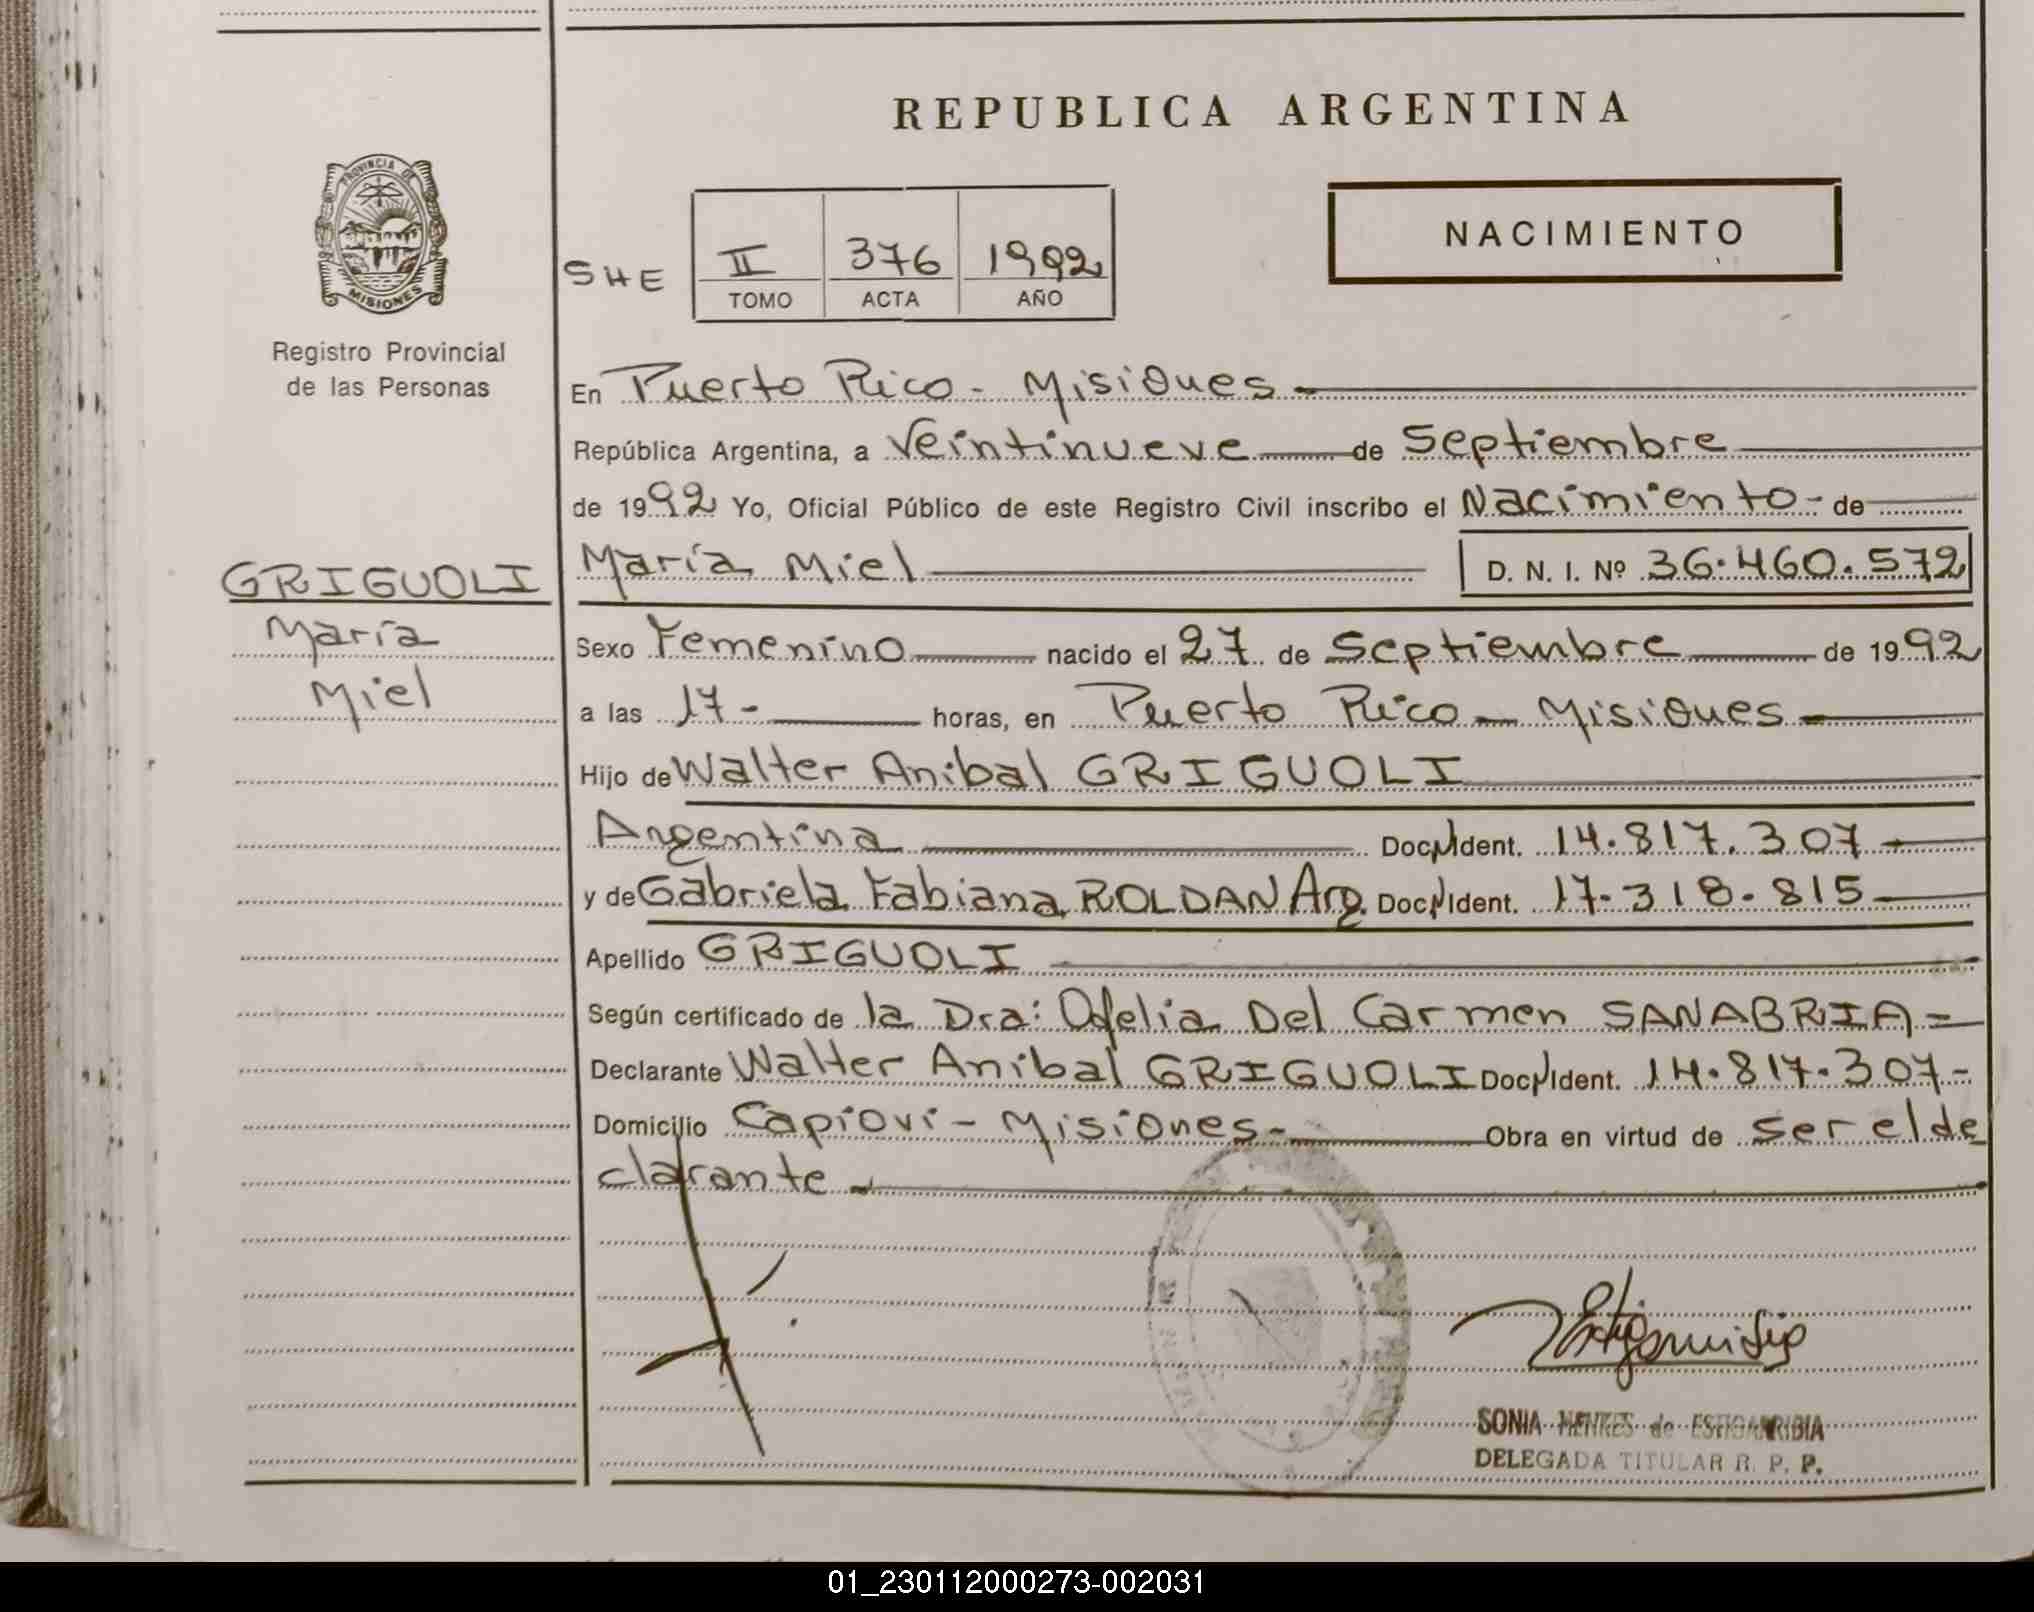 REPUBLICA ARGENTINA
PROVINCIA DE
MISIONES
Registro Provincial
de las Personas
NACIMIENTO
SHE
II 376 1992
TOMO ACTA AÑO
En Puerto Rico - Misiones -
República Argentina, a Veintinueve de Septiembre
de 1992 Yo, Oficial Público de este Registro Civil inscribo el Nacimiento - de
GRIGUOLI
María
Miel
María Miel D. N. I. Nº 36.460.572
Sexo Femenino nacido el 27 de Septiembre de 1992
a las 17 - horas, en Puerto Rico - Misiones -
Hijo de Walter Anibal GRIGUOLI
Argentina Doc. Ident. 14.817.307 -
y de Gabriela Fabiana ROLDAN Arg. Doc. Ident. 17.318.815
Apellido GRIGUOLI
Según certificado de la Dra: Ofelia Del Carmen SANABRIA =
Declarante Walter Anibal GRIGUOLI Doc. Ident. 14.817.307 -
Domicilio Capiovi - Misiones - Obra en virtud de ser el de
clarante -
SONIA HENKES de ESTIGARRIBIA
DELEGADA TITULAR R. P. P.
01_230112000273-002031